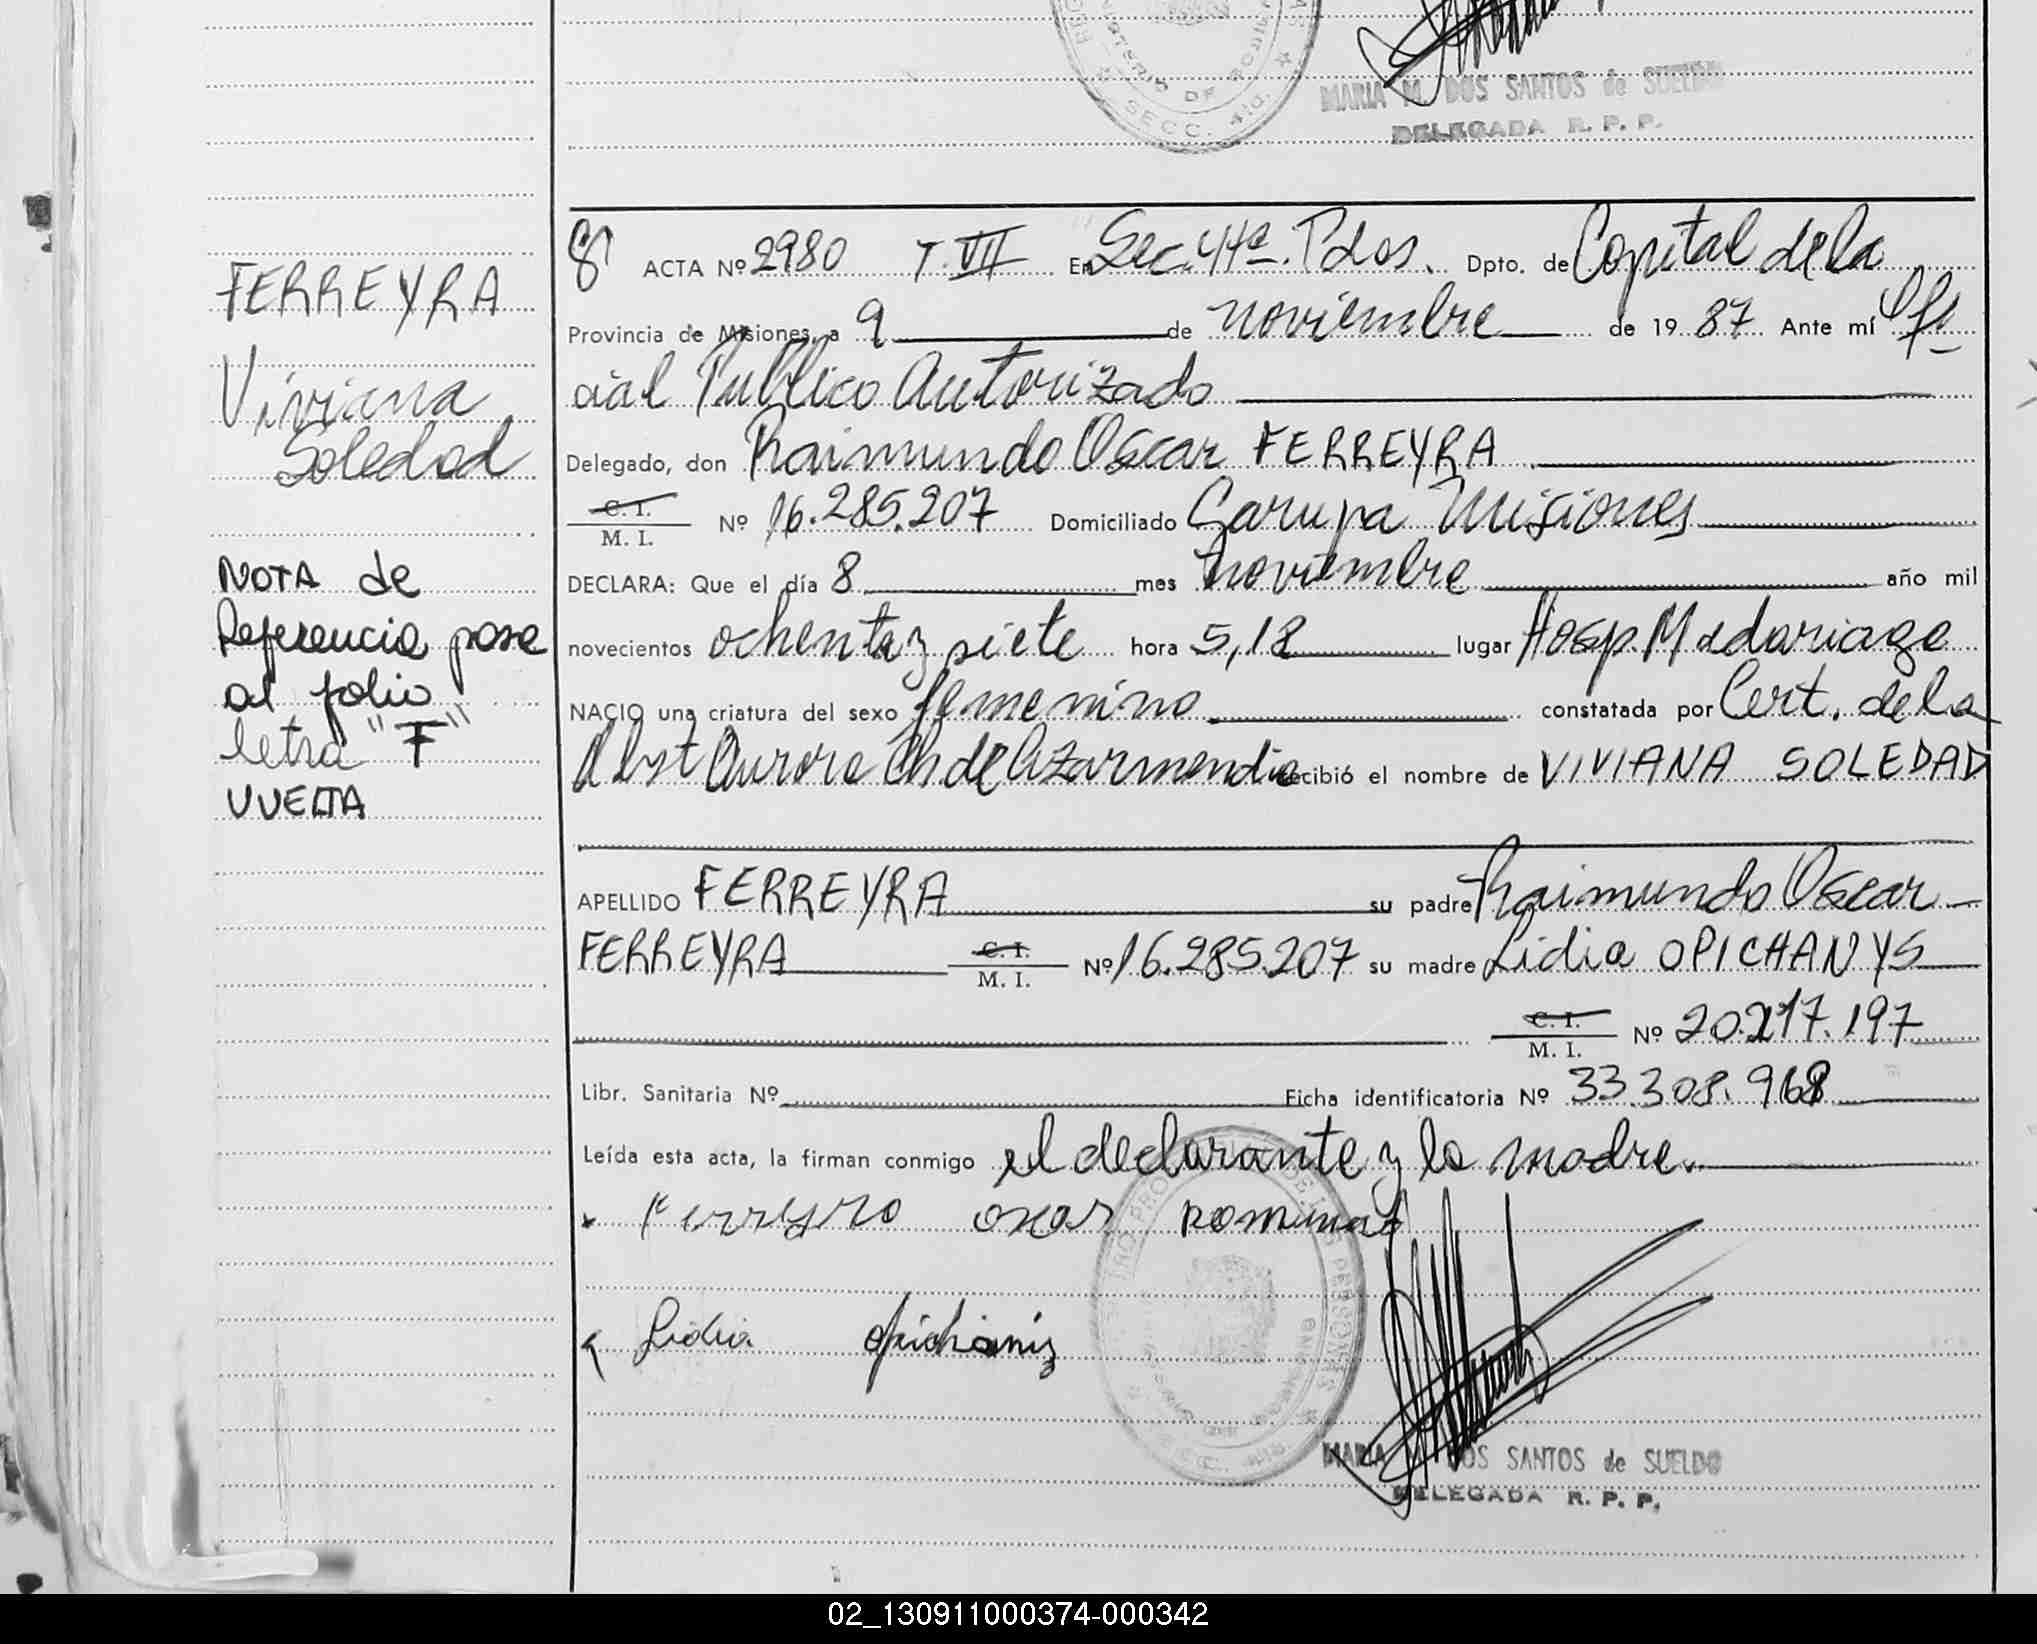 MINISTERIO DE GOBIERNO
SECC. 4ta.
MARIA M. DOS SANTOS de SUELDO
DELEGADA R. P. P.
FERREYRA
Viviana
Soledad
NOTA de
Referencia pase
al folio
letra "F"
VUELTA
ACTA Nº 2980 T. VII En Sec. 4ta. Pdas. Dpto. de Capital de la
Provincia de Misiones, a 9 de noviembre de 19 87 Ante mí Ofi
cial Publico Autorizado
Delegado, don Raimundo Oscar FERREYRA
C. I.
M. I. Nº 16.285.207 Domiciliado Garupa Misiones
DECLARA: Que el día 8 mes noviembre año mil
novecientos ochenta y siete hora 5,18 lugar Hosp. Madariaga
NACIO una criatura del sexo femenino constatada por Cert. de la
Obst Aurora Ch de Azarmendia recibió el nombre de VIVIANA SOLEDAD
APELLIDO FERREYRA su padre Raimundo Oscar
FERREYRA C. I. M. I. Nº 16.285.207 su madre Lidia OPICHANYS
C. I.
M. I. Nº 20.217.197
Libr. Sanitaria Nº Ficha identificatoria Nº 33.308.968
Leída esta acta, la firman conmigo el declarante y la madre.
Ferreyra oscar
Lidia Opichanis
MARIA DOS SANTOS de SUELDO
DELEGADA R. P. P.
02_130911000374-000342